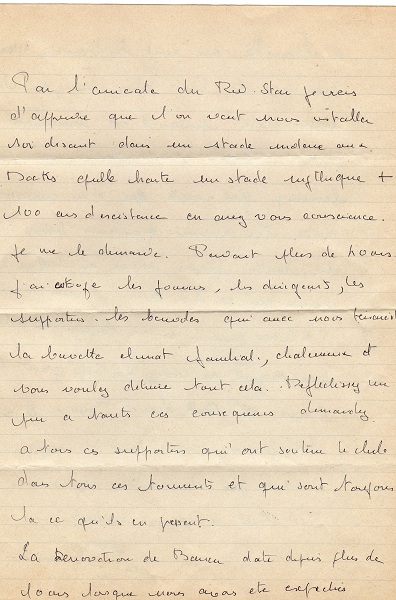 Par l'amicale du Red. Star je viens
d'apprendre que l'on veut nous installer
soi disant dans un stade moderne aux
Docks quelle honte un stade mythique +
100 ans d'existence en avez vous conscience.
Je me le demande. Pendant plus de 40 ans
j'ai les joueurs, les dirigeants, les
supporters. les benevoles qui avec nous tenaient
la buvette climat familial, chaleureux et
vous voulez detruire tout cela. Reflechissez un
peu a toutes ces consequences demandez
a tous ces supporters qui ont soutenu le club
dans tous ces tourments et qui sont toujours
la ce qu'ils en pensent.
La Renovation de Bauer date depuis plus de
10 ans lorsque nous avons ete expropriés